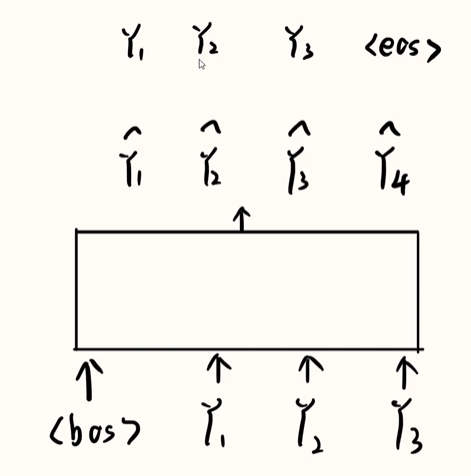 Y₁ Y₂ Y₃ <eos>
Ŷ₁ Ŷ₂ Ŷ₃ Ŷ₄
<bos> Y₁ Y₂ Y₃